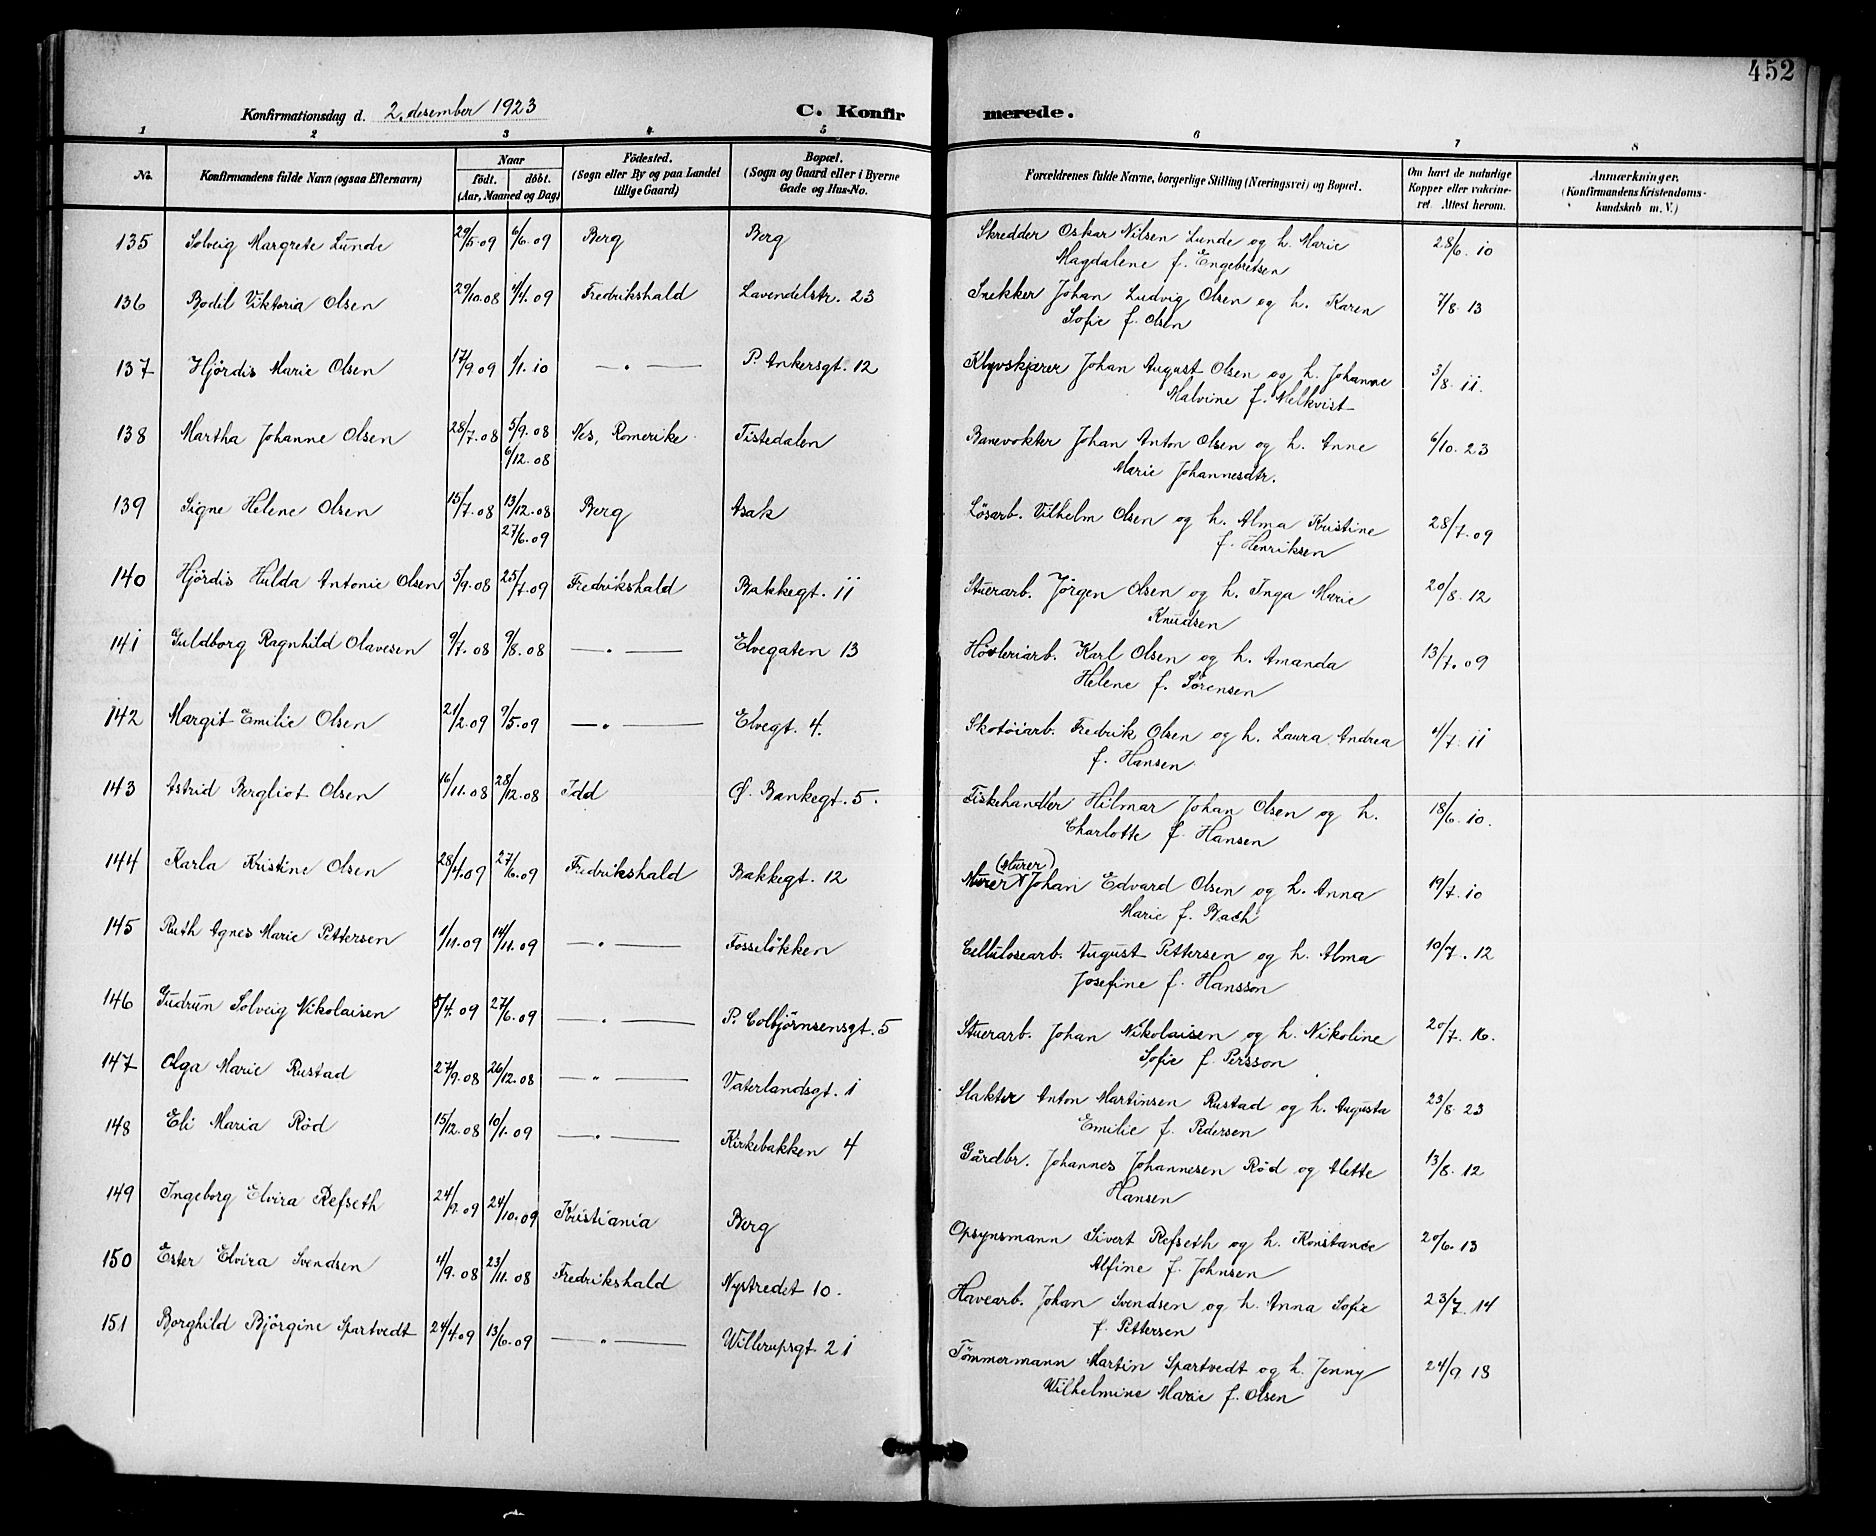 452
Konfirmationsdag d. 2. desember 1923
C. Konfirmerede.
1 2 3 4 5 6 7 8
No. | Konfirmandens fulde Navn (ogsaa Efternavn) | Naar födt. döbt. (Aar, Maaned og Dag) | Födested. (Sogn eller By og paa Landet tillige Gaard) | Bopæl. (Sogn og Gaard eller i Byerne Gade og Hus-No. | Forældrenes fulde Navne, borgerlige Stilling (Næringsvei) og Bopæl. | Om havt de naturlige Kopper eller vakcineret. Attest herom. | Anmærkninger. (Konfirmandens Kristendomskundskab m. V.)
135 Solveig Margrete Lunde 29/5.09 6/6.09 Berg Berg Skredder Oskar Nilsen Lunde og h. Marie 28/6.10
Magdalene f. Engebretsen
136 Bodil Viktoria Olsen 29/10.08 1/4.09 Fredrikshald Lavendelstr. 23 Snekker Johan Ludvig Olsen og h. Karen 7/8.13
Sofie f. Olsen
137 Hjördis Marie Olsen 17/9.09 1/1.10 —„— P. Ankersgt. 12 Kløvskjærer Johan August Olsen og h. Johanne 3/8.11.
Malvine f. Melkvist
138 Martha Johanne Olsen 28/7.08 5/9.08 Nes, Romerike Tistedalen Banevokter Johan Anton Olsen og h. Anne 6/10.23
6/12.08 Marie Johannesdtr.
139 Signe Helene Olsen 15/7.08 13/12.08 Berg Asak Lösarb. Vilhelm Olsen og h. Alma Kristine 28/7.09
27/6.09 f. Henriksen
140 Hjördis Hulda Antonie Olsen 5/9.08 25/7.09 Fredrikshald Bakkegt. 11 Stuerarb. Jörgen Olsen og h. Inga Marie 20/8.12
Knudsen
141 Guldborg Ragnhild Olavesen 9/7.08 9/8.08 —„— Elvegaten 13 Høvleriarb. Karl Olsen og h. Amanda 13/7.09
Helene f. Sörensen
142 Margit Emilie Olsen 21/2.09 9/5.09 —„— Elvegt. 4. Skotöiarb. Fredrik Olsen og h. Laura Andrea 4/7.11
f. Hansen
143 Astrid Bergliot Olsen 16/11.08 28/12.08 Idd Ø. Bankegt. 5. Fiskehandler Hilmar Johan Olsen og h. 18/6.10.
Charlotte f. Hansen
144 Karla Kristine Olsen 28/4.09 27/6.09 Fredrikshald Bakkegt. 12 Murer (Murer) Johan Edvard Olsen og h. Anna 19/7.10
Marie f. Bach
145 Ruth Agnes Marie Pettersen 1/11.09 14/11.09 —„— Fosseløkken Cellulosearb. August Pettersen og h. Alma 10/7.12
Josefine f. Hansson
146 Gudrun Solveig Nikolaisen 5/4.09 27/6.09 —„— P. Colbjørnsensgt. 5 Stuerarb. Johan Nikolaisen og h. Nikoline 20/7.16.
Sofie f. Persson
147 Olga Marie Rustad 27/9.08 26/12.08 —„— Vaterlandsgt. 1 Slakter Anton Martinsen Rustad og h. Augusta 23/8.23
Emilie f. Pedersen
148 Eli Maria Röd 15/12.08 10/1.09 —„— Kirkebakken 4 Gårdbr. Johannes Johannesen Röd og Mette 13/8.12
Hansen
149 Ingeborg Elvira Refseth 24/7.09 24/10.09 Kristiania Berg Opsynsmann Sivert Refseth og h. Konstance 20/6.13
Alfine f. Johnsen
150 Ester Elvira Svendsen 4/9.08 23/11.08 Fredrikshald Nystredet 10. Havearb. Johan Svendsen og h. Anna Sofie 23/7.14
f. Pettersen
151 Borghild Björgine Spartvedt 24/4.09 13/6.09 —„— Willerupsgt. 21 Tömmermann Martin Spartvedt og h. Jenny 24/9 18
Wilhelmine Marie f. Olsen